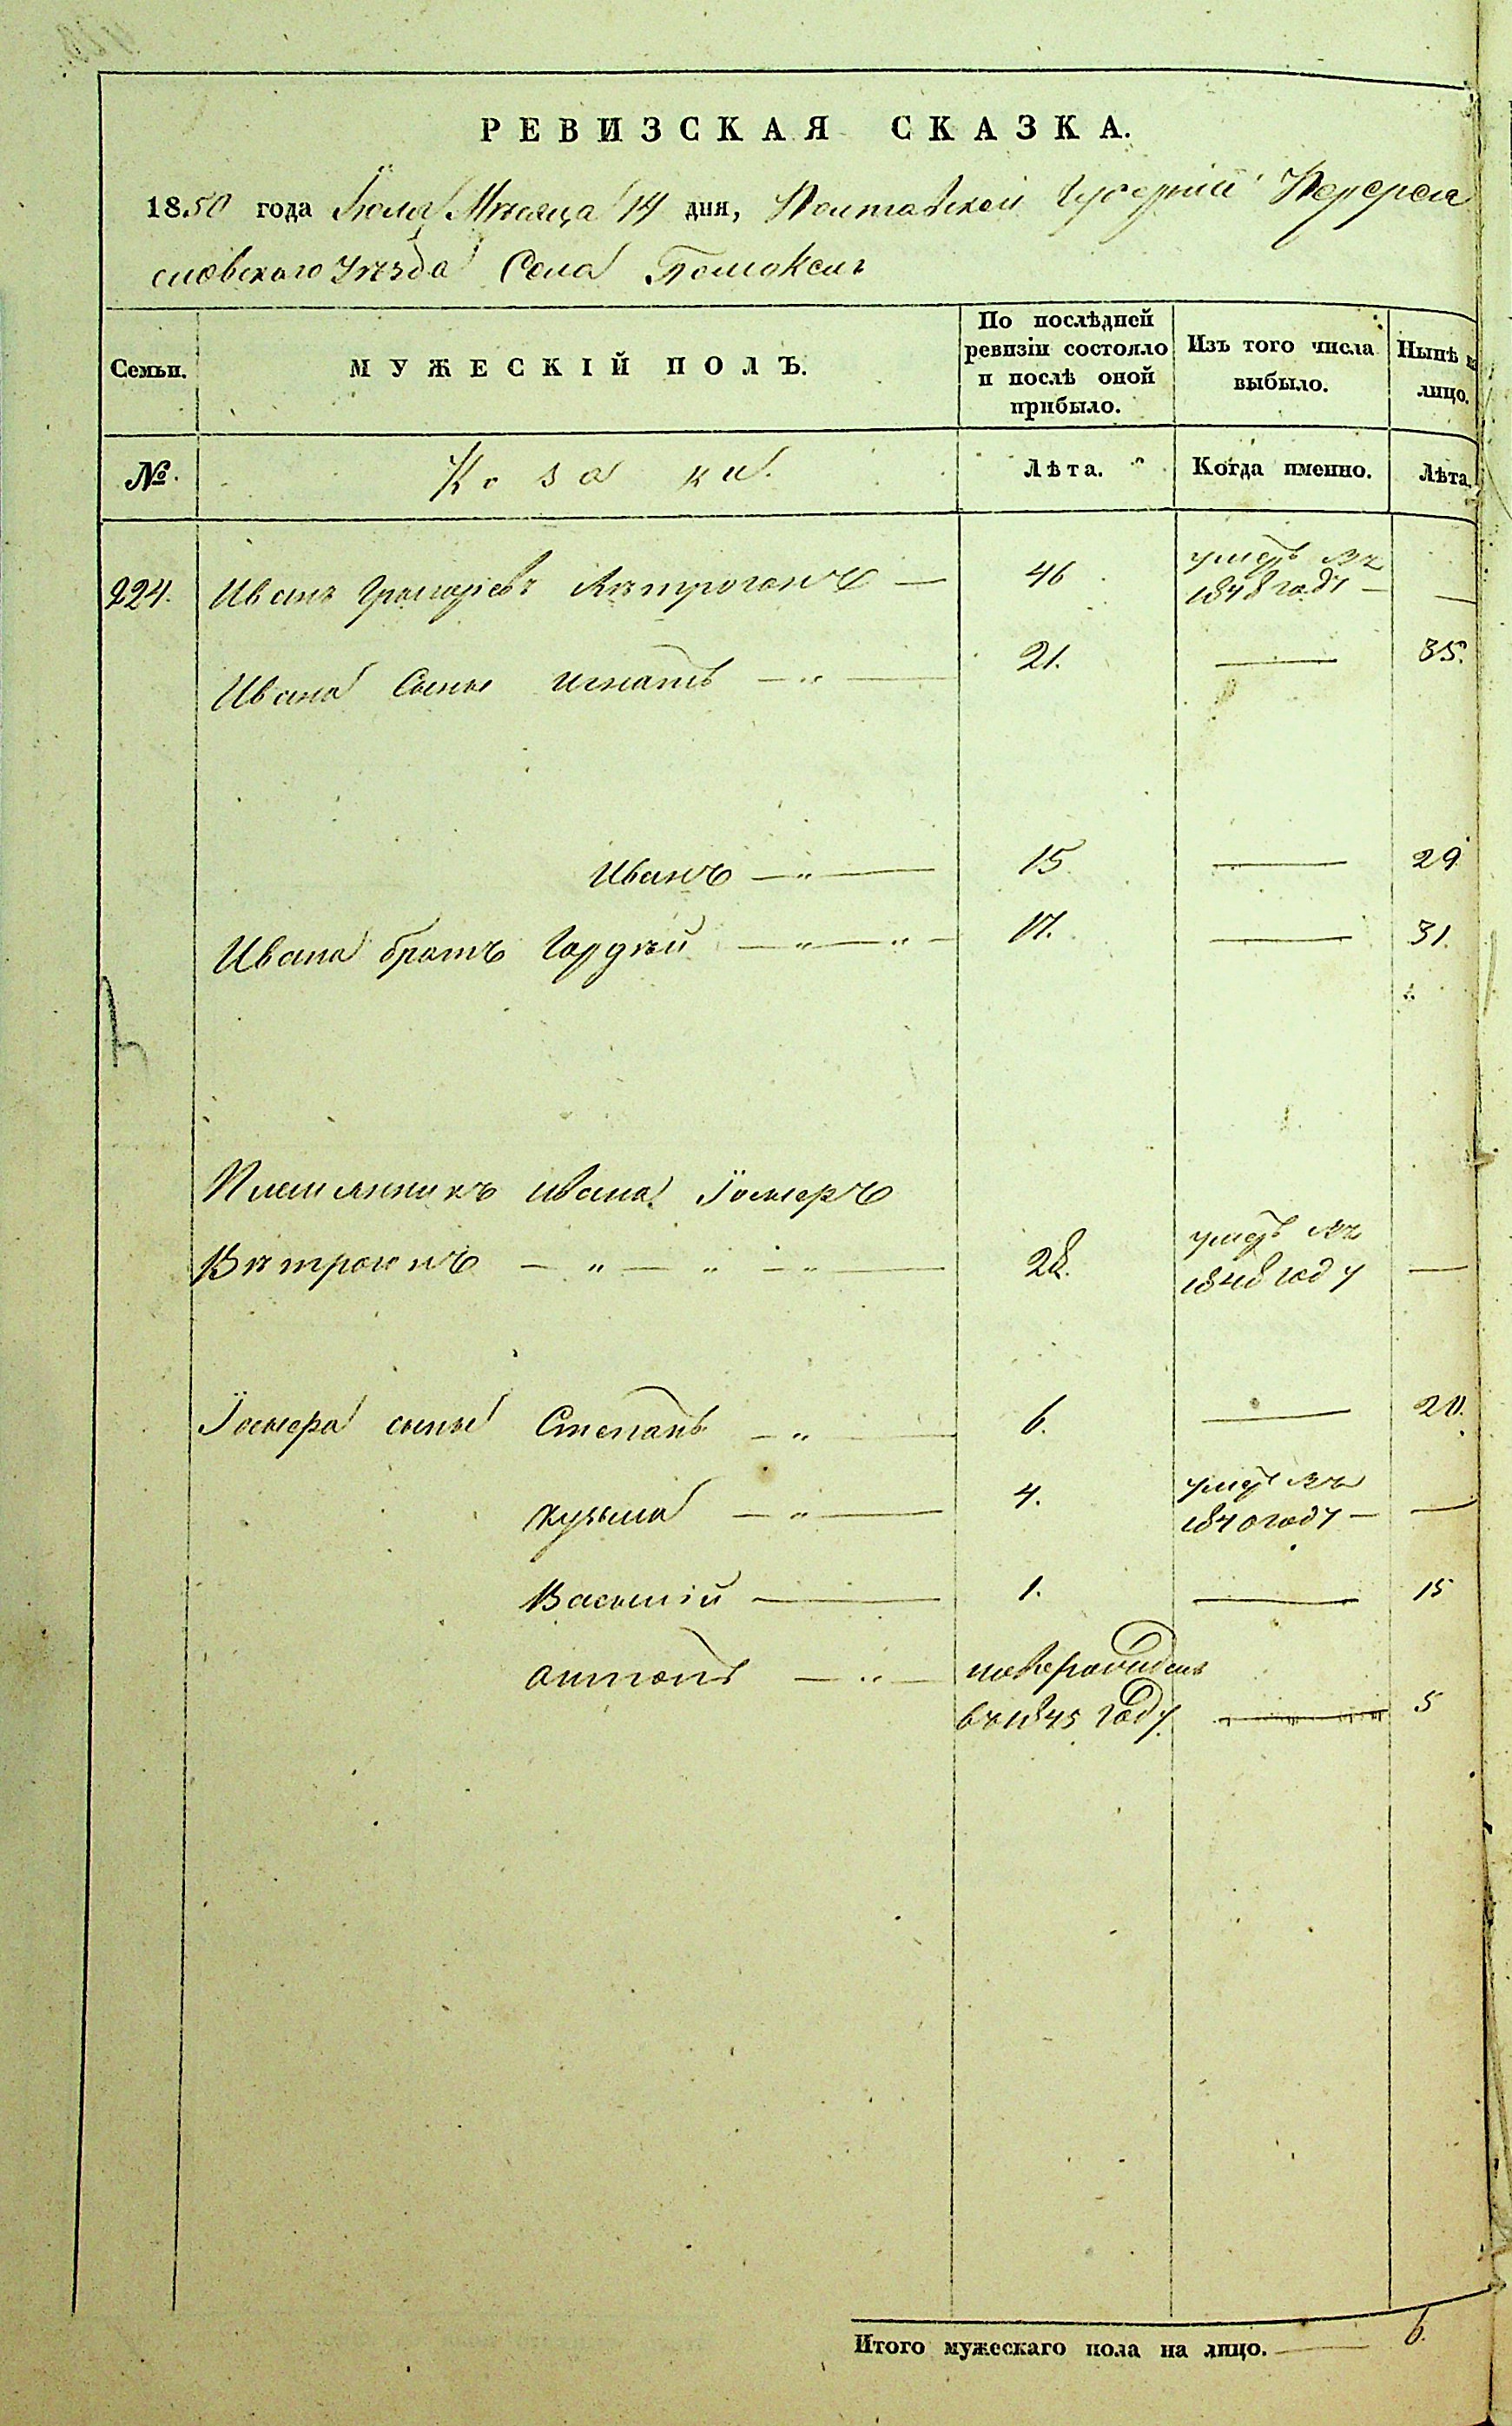 РЕВИЗСКАЯ СКАЗКА.
1850 года Іюля Мѣсяца 14 дня, Полтавской Губерніи Переяа
славскаго Уѣзда Села Помоклъ
Семьи.
МУЖЕСКІЙ ПОЛЪ.
По послѣдней ревизіи состояло и послѣ оной прибыло.
Изъ того числа выбыло.
Нынѣ на лицо.
№.
Козаки.
Лѣта.
Когда именно.
Лѣта.
224. Иванъ Григорьевъ Вѣтрогонъ — 46 умеръ въ 1848 году — —
Ивана Сыны Игнатъ — 21. — 35.
Иванъ — 15 — 29
Ивана братъ Гордѣй — 17. — 31.
Племянникъ Ивана
Вѣтрогонъ — 28. умеръ въ 1848 году —
сыны Степанъ — 6. — 20.
Кузьма — 4. умеръ въ 1840 году — —
Василій — 1. — 15
Антонъ — новорожденъ въ 1845 году — 5
Итого мужескаго пола на лицо. — 6.